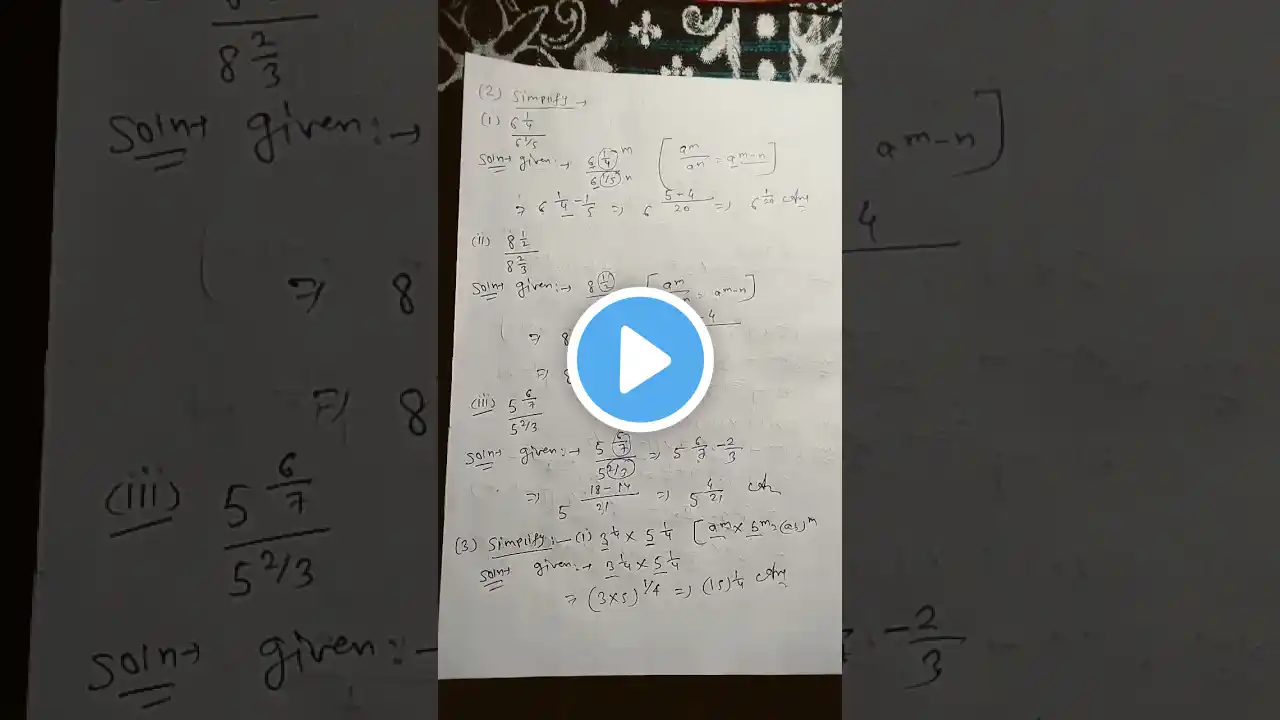 (2) Simplify →
(i) 6 1/4
6 1/5
Soln→ given:→ 6 (1/4) m [ am/an = am-n ]
6 (1/5) n
⇒ 6 1/4 - 1/5 ⇒ 6 5-4/20 ⇒ 6 1/20 Ans
(ii) 8 1/2
8 2/3
Soln→ given:→ 8 (1/2) [ am = am-n ]
⇒ 8 -4
⇒ 8
(iii) 5 6/7
5 2/3
Soln→ given:→ 5 (6/7) ⇒ 5 6/7 -2/3
5 (2/3)
⇒ 5 18-14/21 ⇒ 5 4/21
(3) Simplify:- (i) 3 1/4 × 5 1/4 [ am ×
Soln→ given:→ 3 1/4 × 5 1/4
⇒ (3×5) 1/4 ⇒ (15) 1/4 Ans